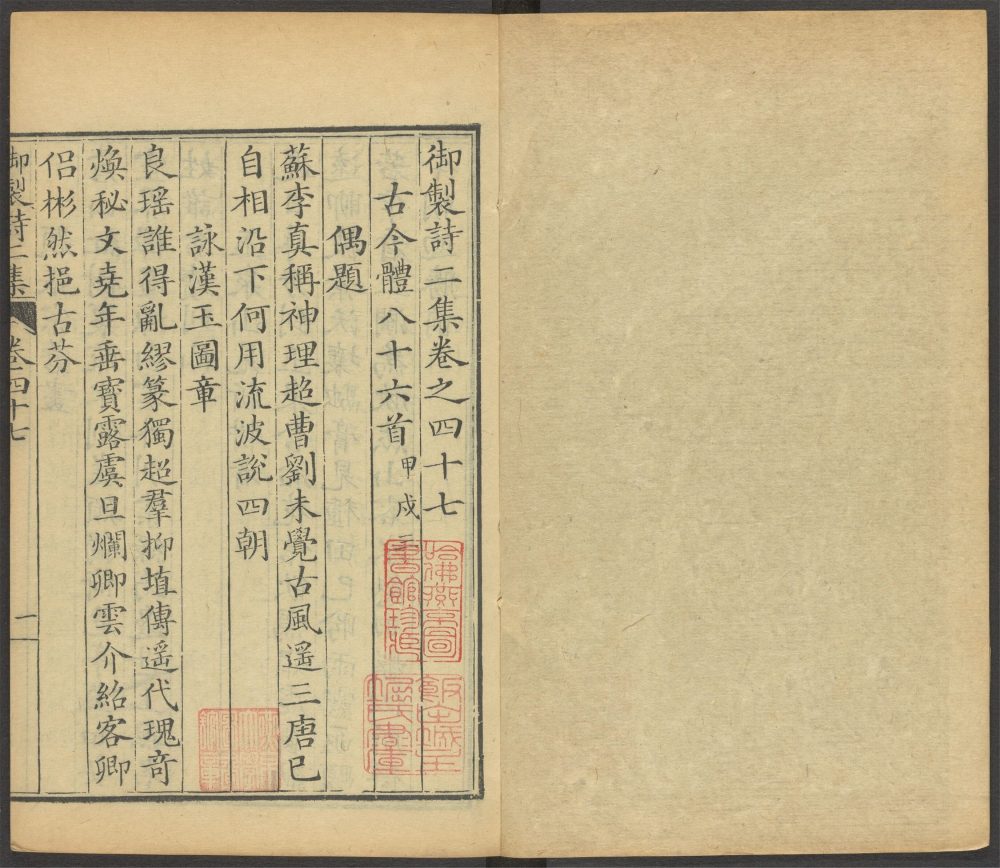 御製詩二集卷之四十七
古今體八十六首甲戌三
偶題
蘇李真稱神理超曹劉未覺古風遥三唐已
自相沿下何用流波說四朝
詠漢玉圖章
良瑶誰得亂繆篆獨超羣抑埴傳遥代瑰奇
煥秘文堯年垂寶露虞旦爛卿雲介紹客卿
侣彬然挹古芬
御製詩二集 卷四十七 一
哈佛燕京圖書館珍藏